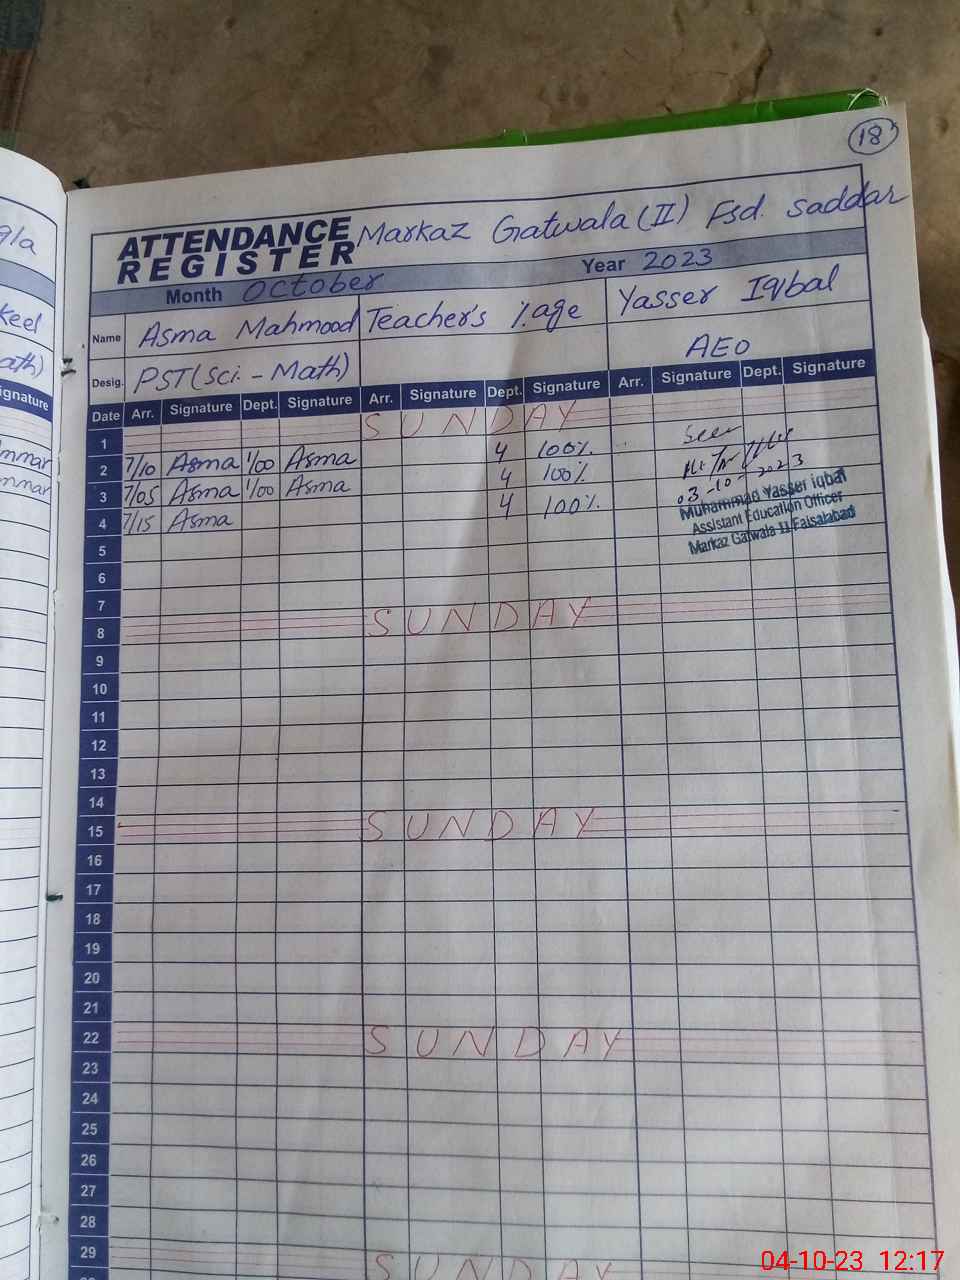 18
ATTENDANCE REGISTER Markaz Gatwala (II) Fsd. Saddar
Month October Year 2023
Name Asma Mahmood Teacher's %age Yasser Iqbal
Desig. PST (Sci. - Math) AEO
Date Arr. Signature Dept. Signature Arr. Signature Dept. Signature Arr. Signature Dept. Signature
1 SUNDAY
2 7/10 Asma 1/00 Asma 4 100% Seen
3 7/05 Asma 1/00 Asma 4 100%
4 7/15 Asma 4 100% 03-10-2023
Muhammad Yasser Iqbal
Assistant Education Officer
Markaz Gatwala II Faisalabad
5
6
7
8 SUNDAY
9
10
11
12
13
14
15 SUNDAY
16
17
18
19
20
21
22 SUNDAY
23
24
25
26
27
28
29 SUNDAY
gla
keel
ath)
ignature
mmar
mmar
04-10-23 12:17